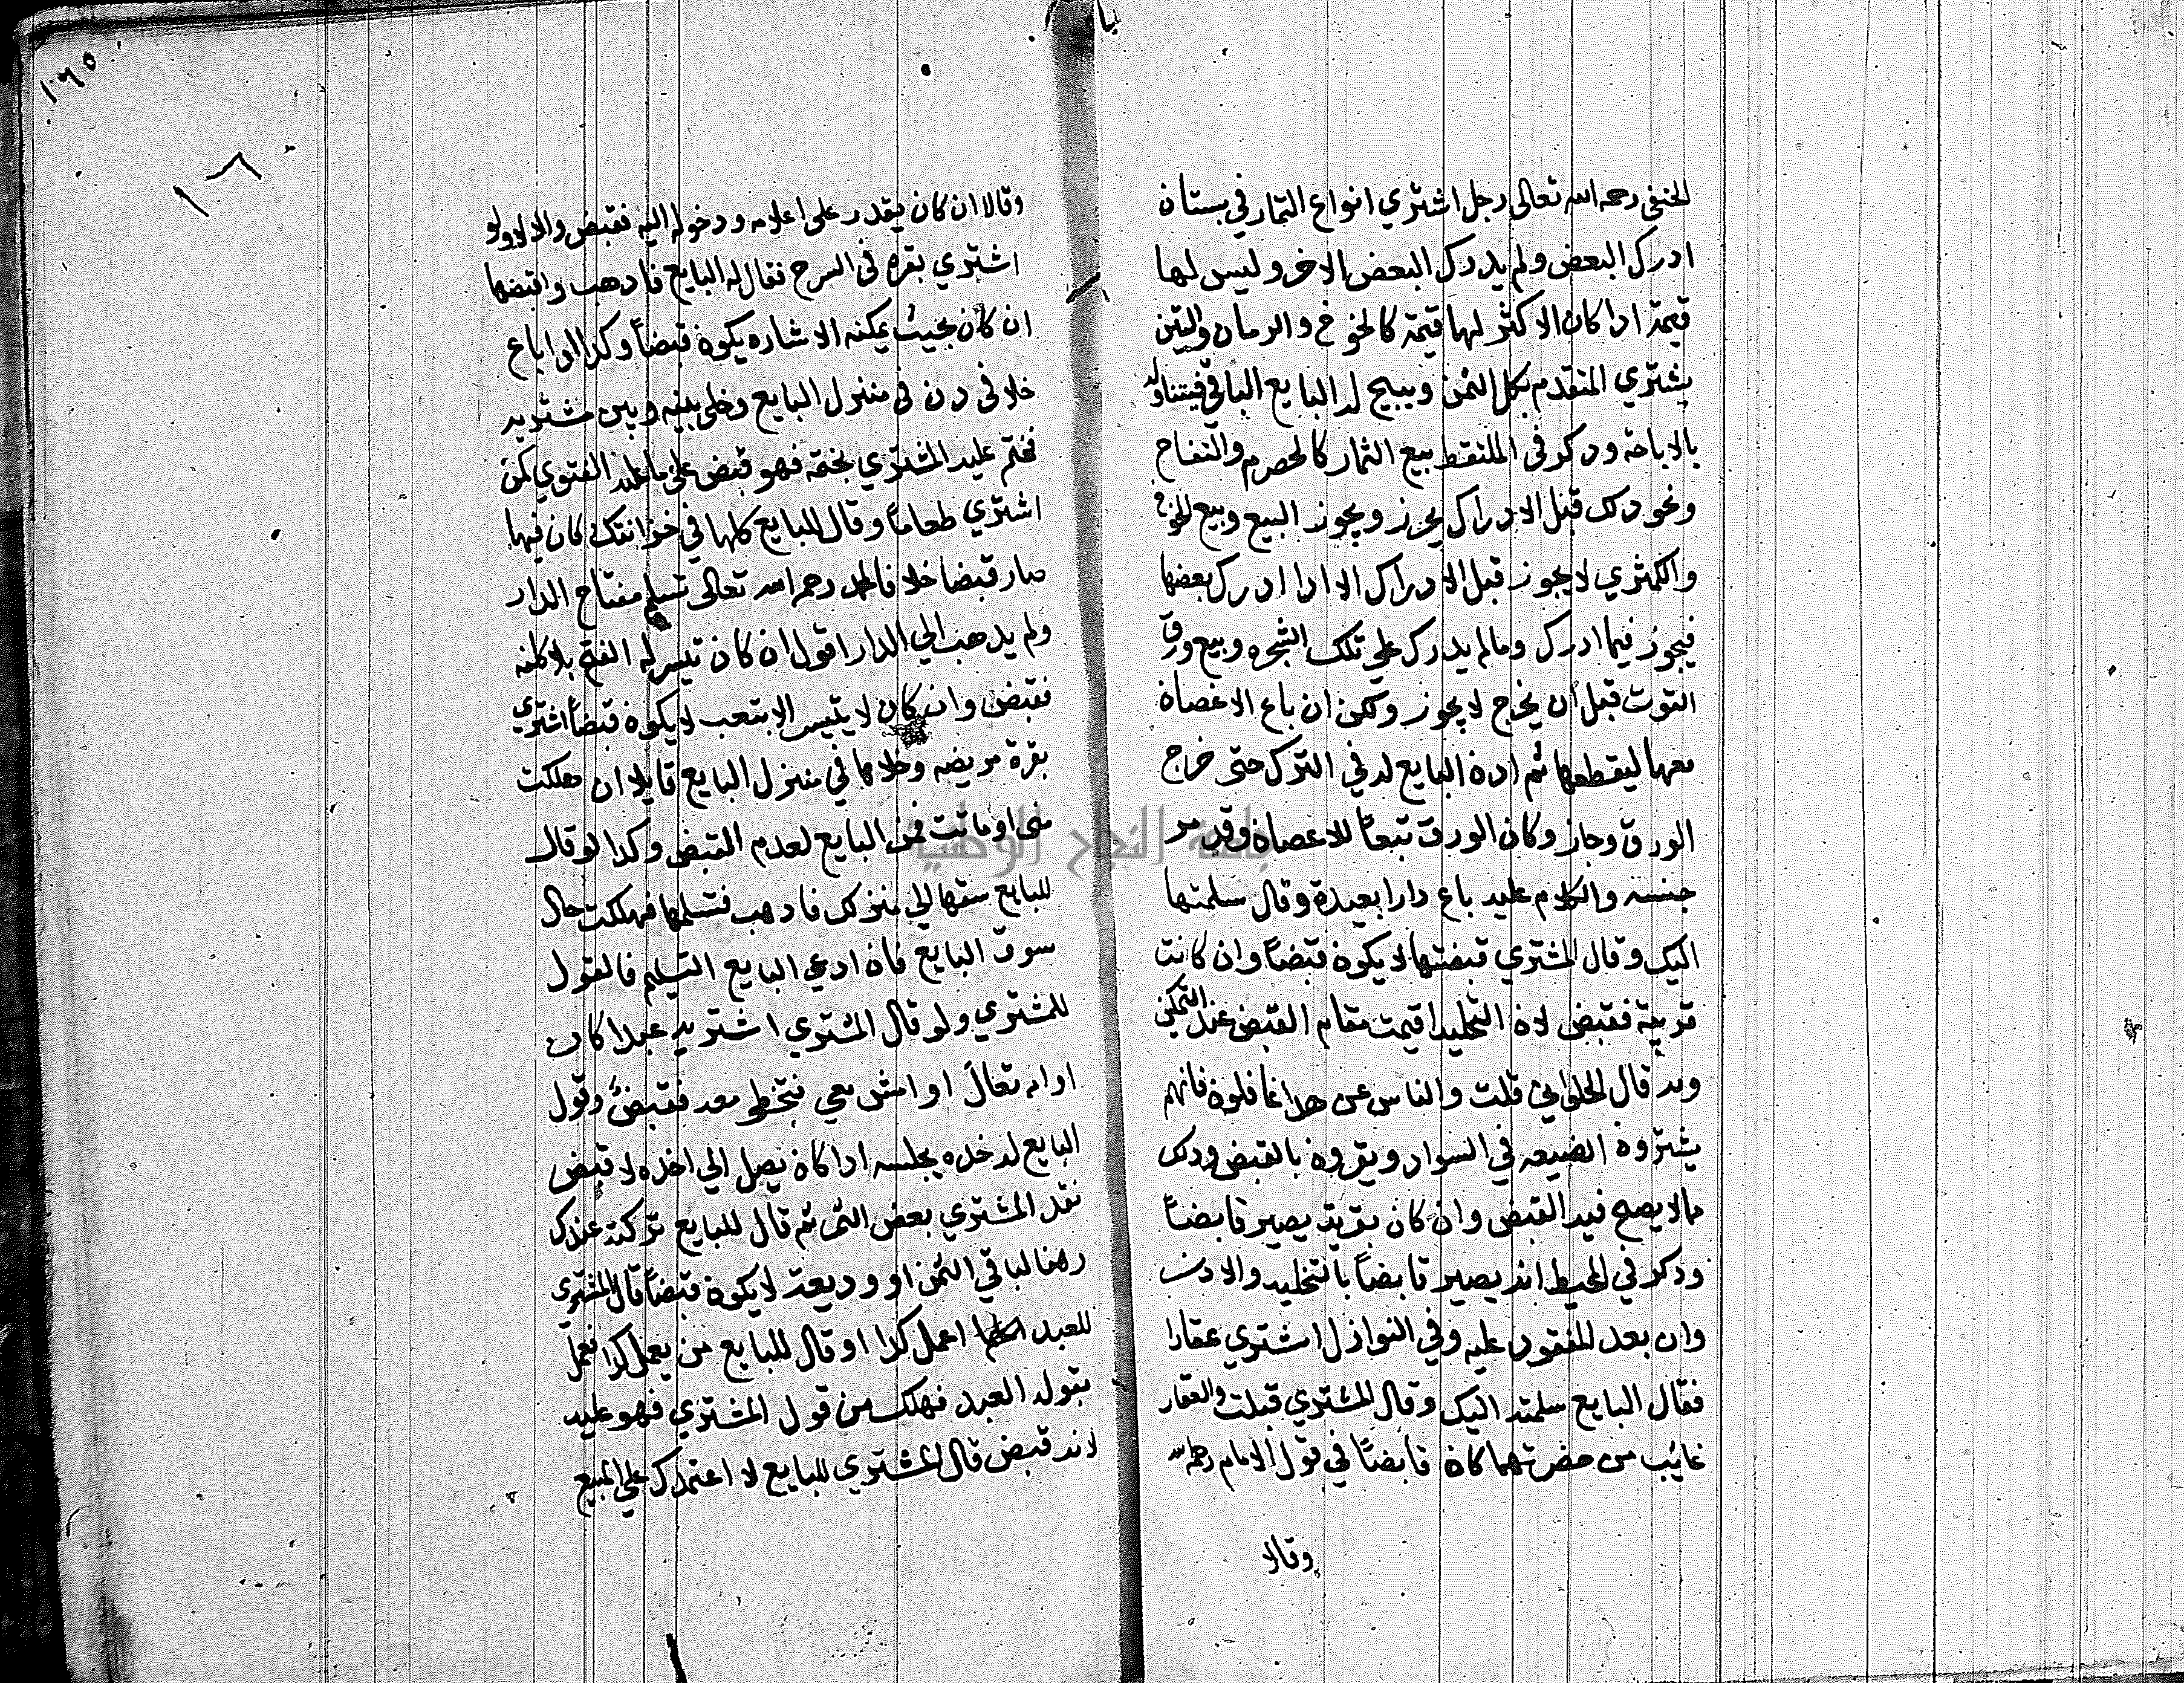 الحنفى رحمه الله تعالى رجل اشتري انواع الثمار في بستان
ادرك البعض ولم يدرك البعض الاخر وليس لها
قيمة ادا كان الاكثر لها قيمة كالخوخ والرمان والتين
يشتري المتقدم بكل الثمن ويبيح له البايع الباقي فيتناوله
بالاباحة ودكر فى الملتقط بيع الثمار كالحصرم والتفاح
ونحو دلك قبل الادراك يجوز ويجوز البيع وبيع الخوخ
والكمثري لا يجوز قبل الادراك الا ادا ادرك بعضها
فيجوز فيما ادرك ومالم يدرك علي تلك الشجره وبيع ورق
التوت قبل ان يخرج لا يجوز ولكن ان باع الاغصان
معها ليقطعها ثم ادن البايع له في الترك حتى خرج
الورق وجاز وكان الورق تبعاً للاغصان وقد مر
جنسه والكلام عليه باع دارا بعيدة وقال سلمتها
اليك وقال المشتري قبضتها لا يكون قبضاً وان كانت
قريبة فقبض لان التخليه اقيمت مقام القبض عند التمكن
وبه قال الحلواني قلت والناس عن هدا غافلون فانهم
يشترون الضيعه في السواد ويقرون بالقبض ودلك
مالا يصح فيه القبض وان كان بقربه يصير قابضاً
ودكر في المحيط انه يصير قابضاً بالتخليه والادن
وان بعد المعقود عليه وفي النوازل اشتري عقارا
فقال البايع سلمته اليك وقال المشتري قبلت والعقار
غائب من حضرتهما كان قابضاً في قول الامام رحمه الله
وقالا
وقالا ان كان يقدر على اعلامه ودخوله اليه فقبض والا لا ولو
اشتري بقره فى السرح فقال له البايع فادهب واقبضها
ان كان بحيث يمكنه الاشاره يكون قبضاً وكدا لو اباع
خلا فى دن فى منزل البايع وخلى بينه وبين مشتريه
فختم عليه المشتري بختمه فهو قبض على ما عليه الفتوي كمن
اشتري طعاماً وقال للبايع كلها في خزانتك كان فيها
صار قبضا خلافا لمحمد رحمه الله تعالى تسلم مفتاح الدار
ولم يدهب الي الدار اقول ان كان تيسر له الفتح بلا كلفه
فقبض وان كان لا يتيسر الا بتعب لا يكون قبضاً اشتري
بقرة مريضه وخلاها في منزل البايع قايلا ان هلكت
منى او ماتت فمن البايع لعدم القبض وكدا لو قال
للبايع سقها الي منزلك فادهب فتسلمها فهلكت حال
سوق البايع فان ادعي البايع التسليم فالقول
للمشتري ولو قال المشتري اشتريه عبدا كان
او امه تعال او امش معي فتخطي معه فقبض وقول
البايع له خده بجلسه ادا كان يصل الي اخده لا قبض
نقد المشتري بعض الثمن ثم قال للبايع تركته عندك
رهنا لباقي الثمن او وديعة لا يكون قبضاً قال المشتري
للعبد اعمل كدا او قال للبايع من يعمل كدا فعمل
بقوله العبد فهلك من قول المشتري فهو عليه
لانه قبض قال المشتري للبايع لا اعتمدك علي المبيع
جامعة النجاح الوطنية